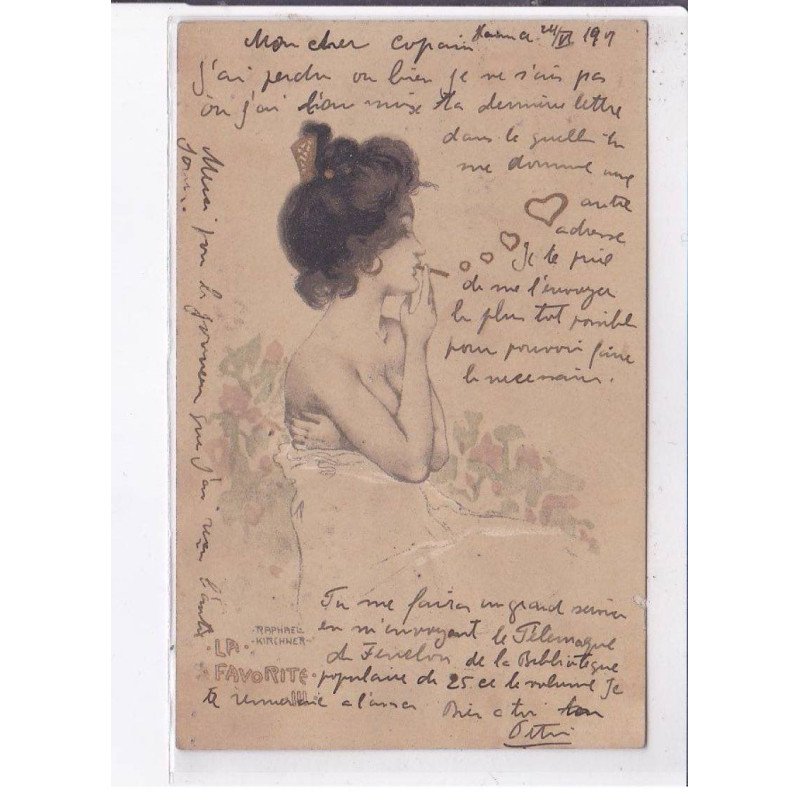 Mon cher copain 24/VI 1901
j'ai perdu ou bien je ne sais pas
ou j'ai bien mise ta derniere lettre
dans le quelle tu
me donne une
autre
adresse
Je te prie
de me l'envoyer
le plus tot posible
pour pouvoir faire
le necesaire.
Tu me fairas un grand service
en m'envoyant le Télémaque
de Fenelon de la Bibliotegue
populaire de 25 ce le volume Je
te remercie a l'avance Bien a toi
Merci pour le journeau que j'ai reçu l'autre
jour.
RAPHAEL
KIRCHNER
LA
FAVORITE
III